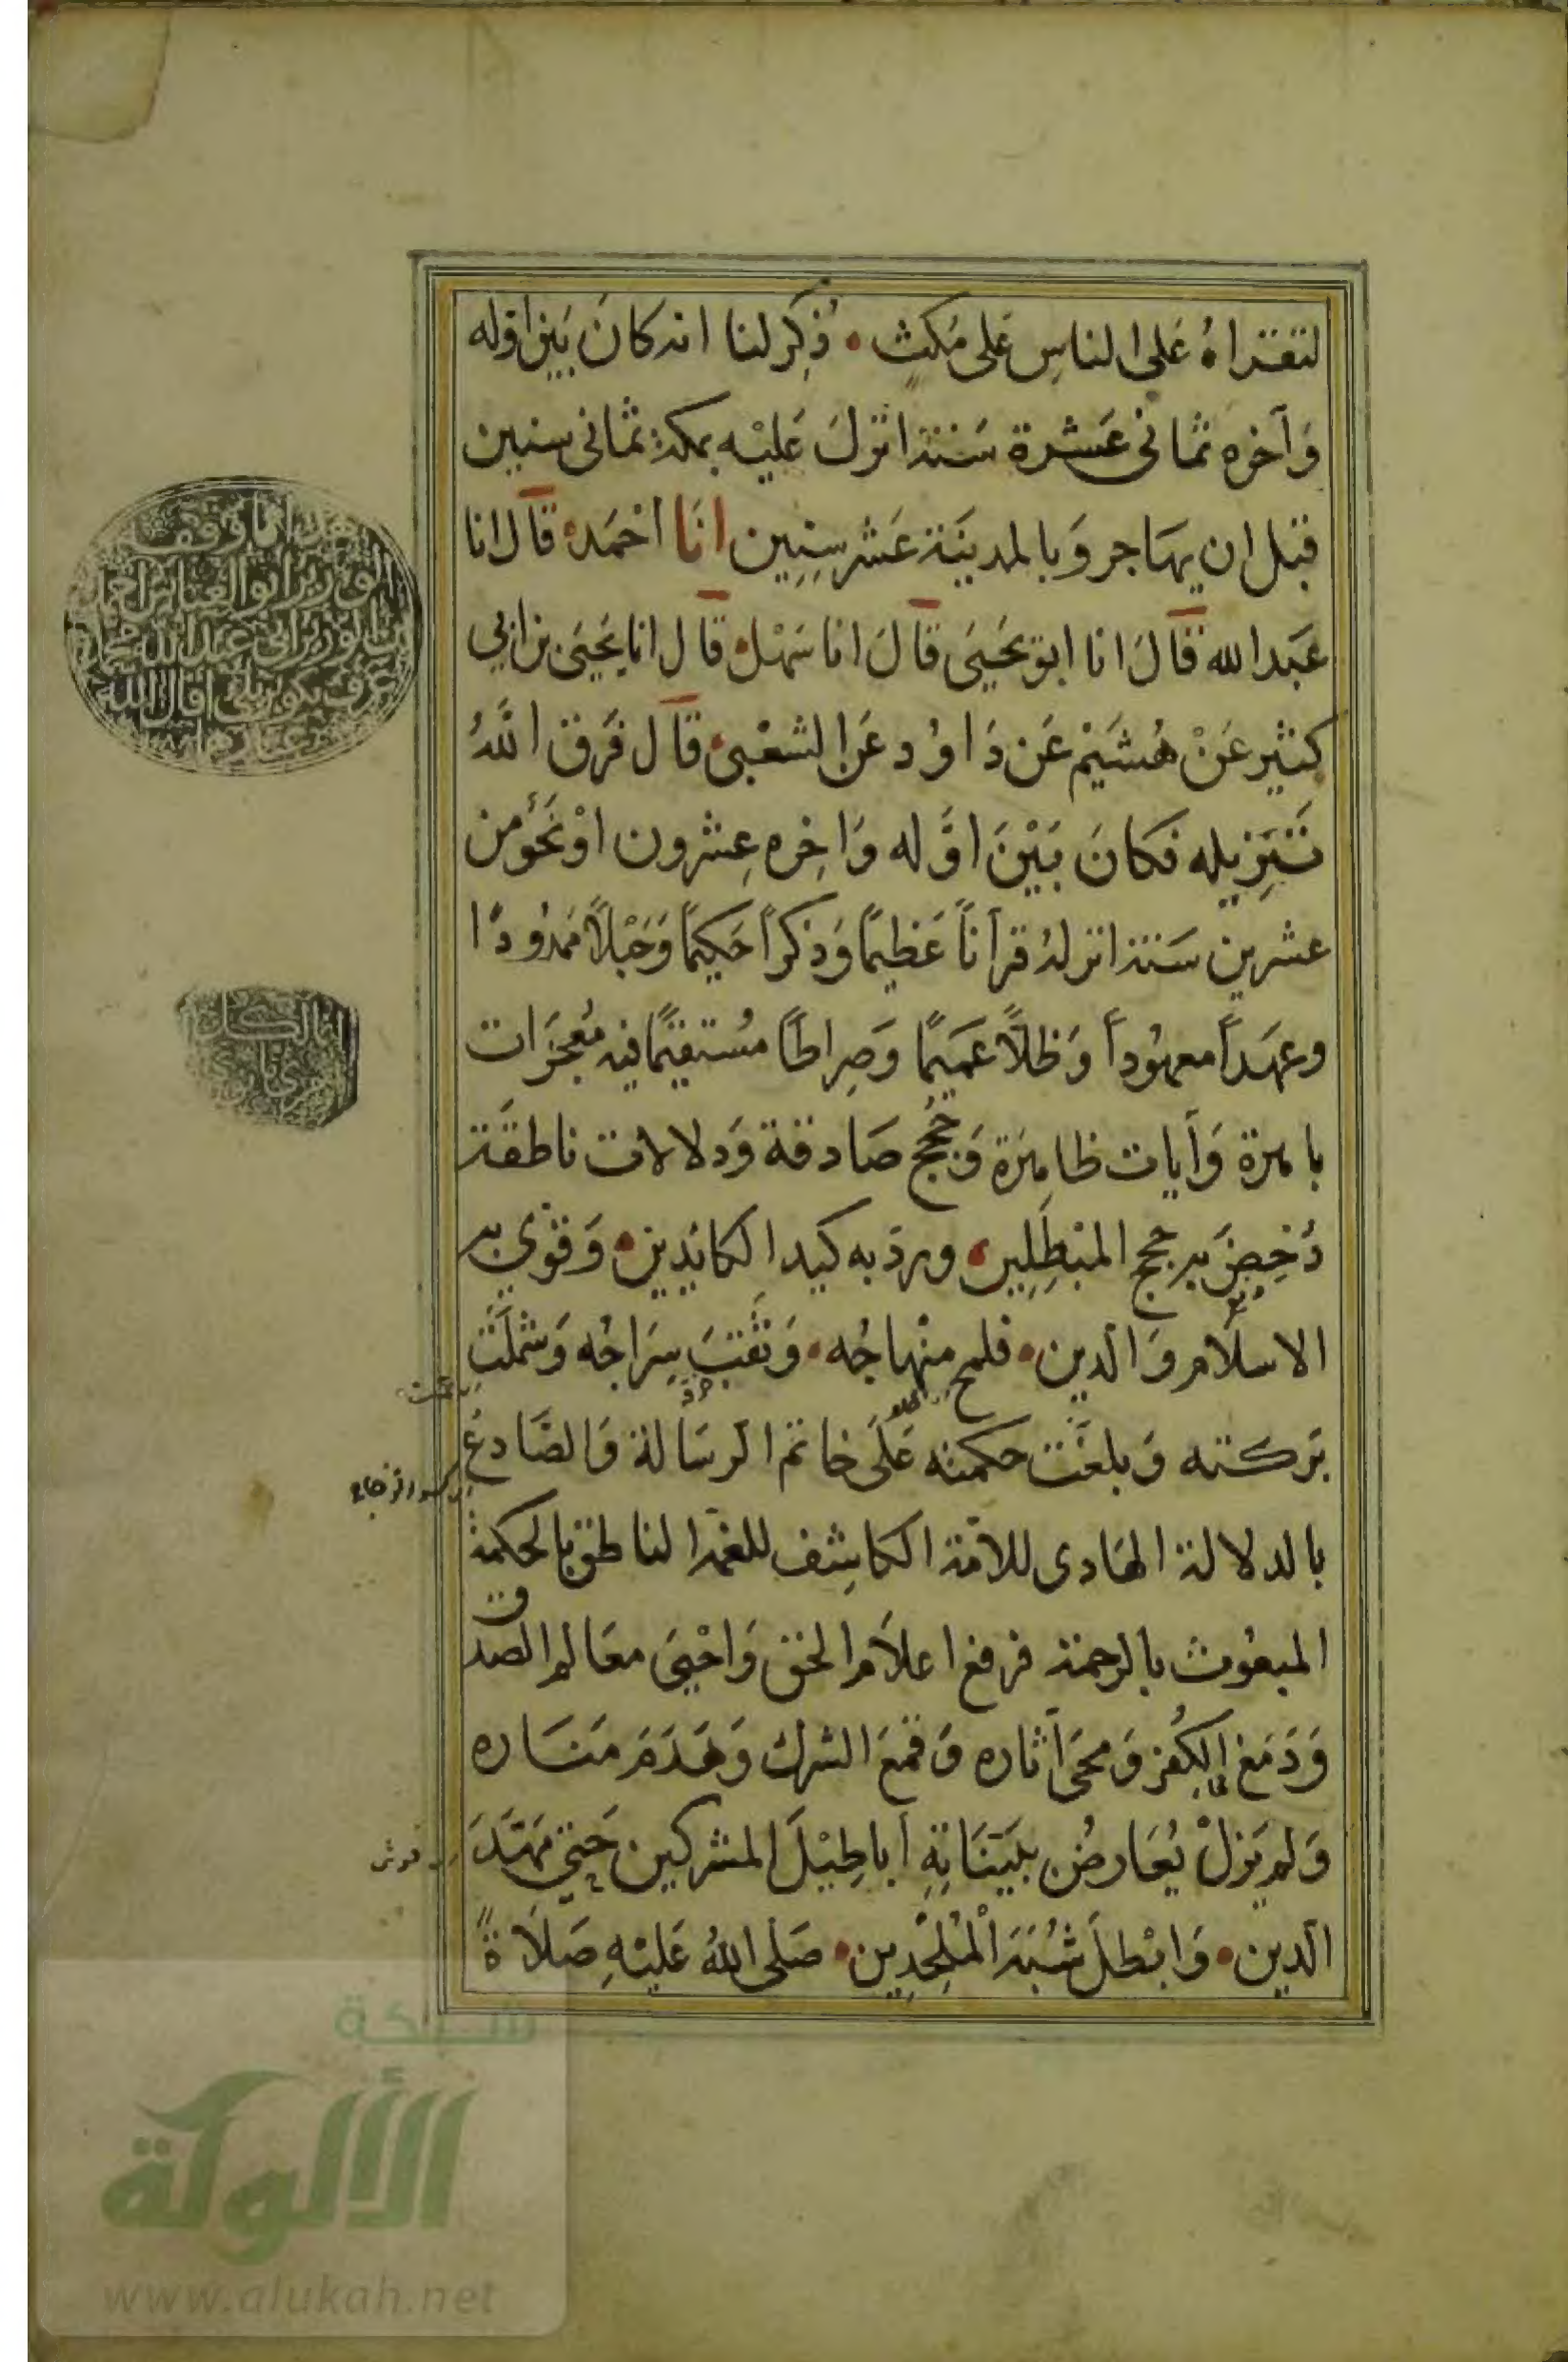 لتقراهُ عَلى الناسِ عَلى مُكثٍ • ذُكِرَ لنا انه كانَ بَين اوله
وَآخره ثمانى عَشرة سَنة انزلَ عَليْه بمكة ثمانى سنين
قبل ان يهَاجر وَبالمدينَة عَشر سِنِين انَا احْمَد قال انا
عَبد الله قالَ انا ابو يَحيَى قالَ انا سَهْل قال انا يَحيَى بن ابي
كثير عَنْ هُشَيْم عَن دَاوُد عَن الشعْبى قال فَرق اللهُ
تَنزِيله فكانَ بَيْنَ اوَّله وَاخِره عِشرون اوْ نَحْو من
عشرين سَنة انزلهُ قرآناً عَظيمًا وَذكراً حَكيمًا وَحَبْلاً ممدُودًا
وعهَداً معهوُداً وَظلاً عَميمًا وَصِراطًا مُستقيمًا فيه مُعجزَات
باهرة وَآيات ظاهِرَة وَحُجج صَادقة وَدلالات ناطقَة
دُحِضَ به حجج المبْطِلِين • ورد به كيد الكائِدِين • وَقوّي به
الاسلام وَالدين • فلمح مِنْهاجُه • وَثَقبَ سِرَاجُه وَشملَت
بَركته وَبلغَت حكمته عَلَى خاتم الرسَالة وَالصَّادعُ
بالدلالة الهَادى للاُمة الكاشِف للغمة الناطق بالحكمة
المبعُوث بالرحمة فرفع اعلاَم الحق وَاحْيَى معَالم الصدق
وَدَمَغ الكُفر وَمحَى آثاره وَقمعَ الشرك وَهَدَمَ مَنَاره
وَلم يَزلْ يُعَارضُ ببَيّنَاتِهِ أباطِيْلَ المشركين حَتى مَهّدَ
الدين • وَابْطلَ شُبَهَ الْمُلْحِدِين • صَلى اللهُ عَليْهِ صَلاَةً
شبكة
الألوكة
www.alukah.net